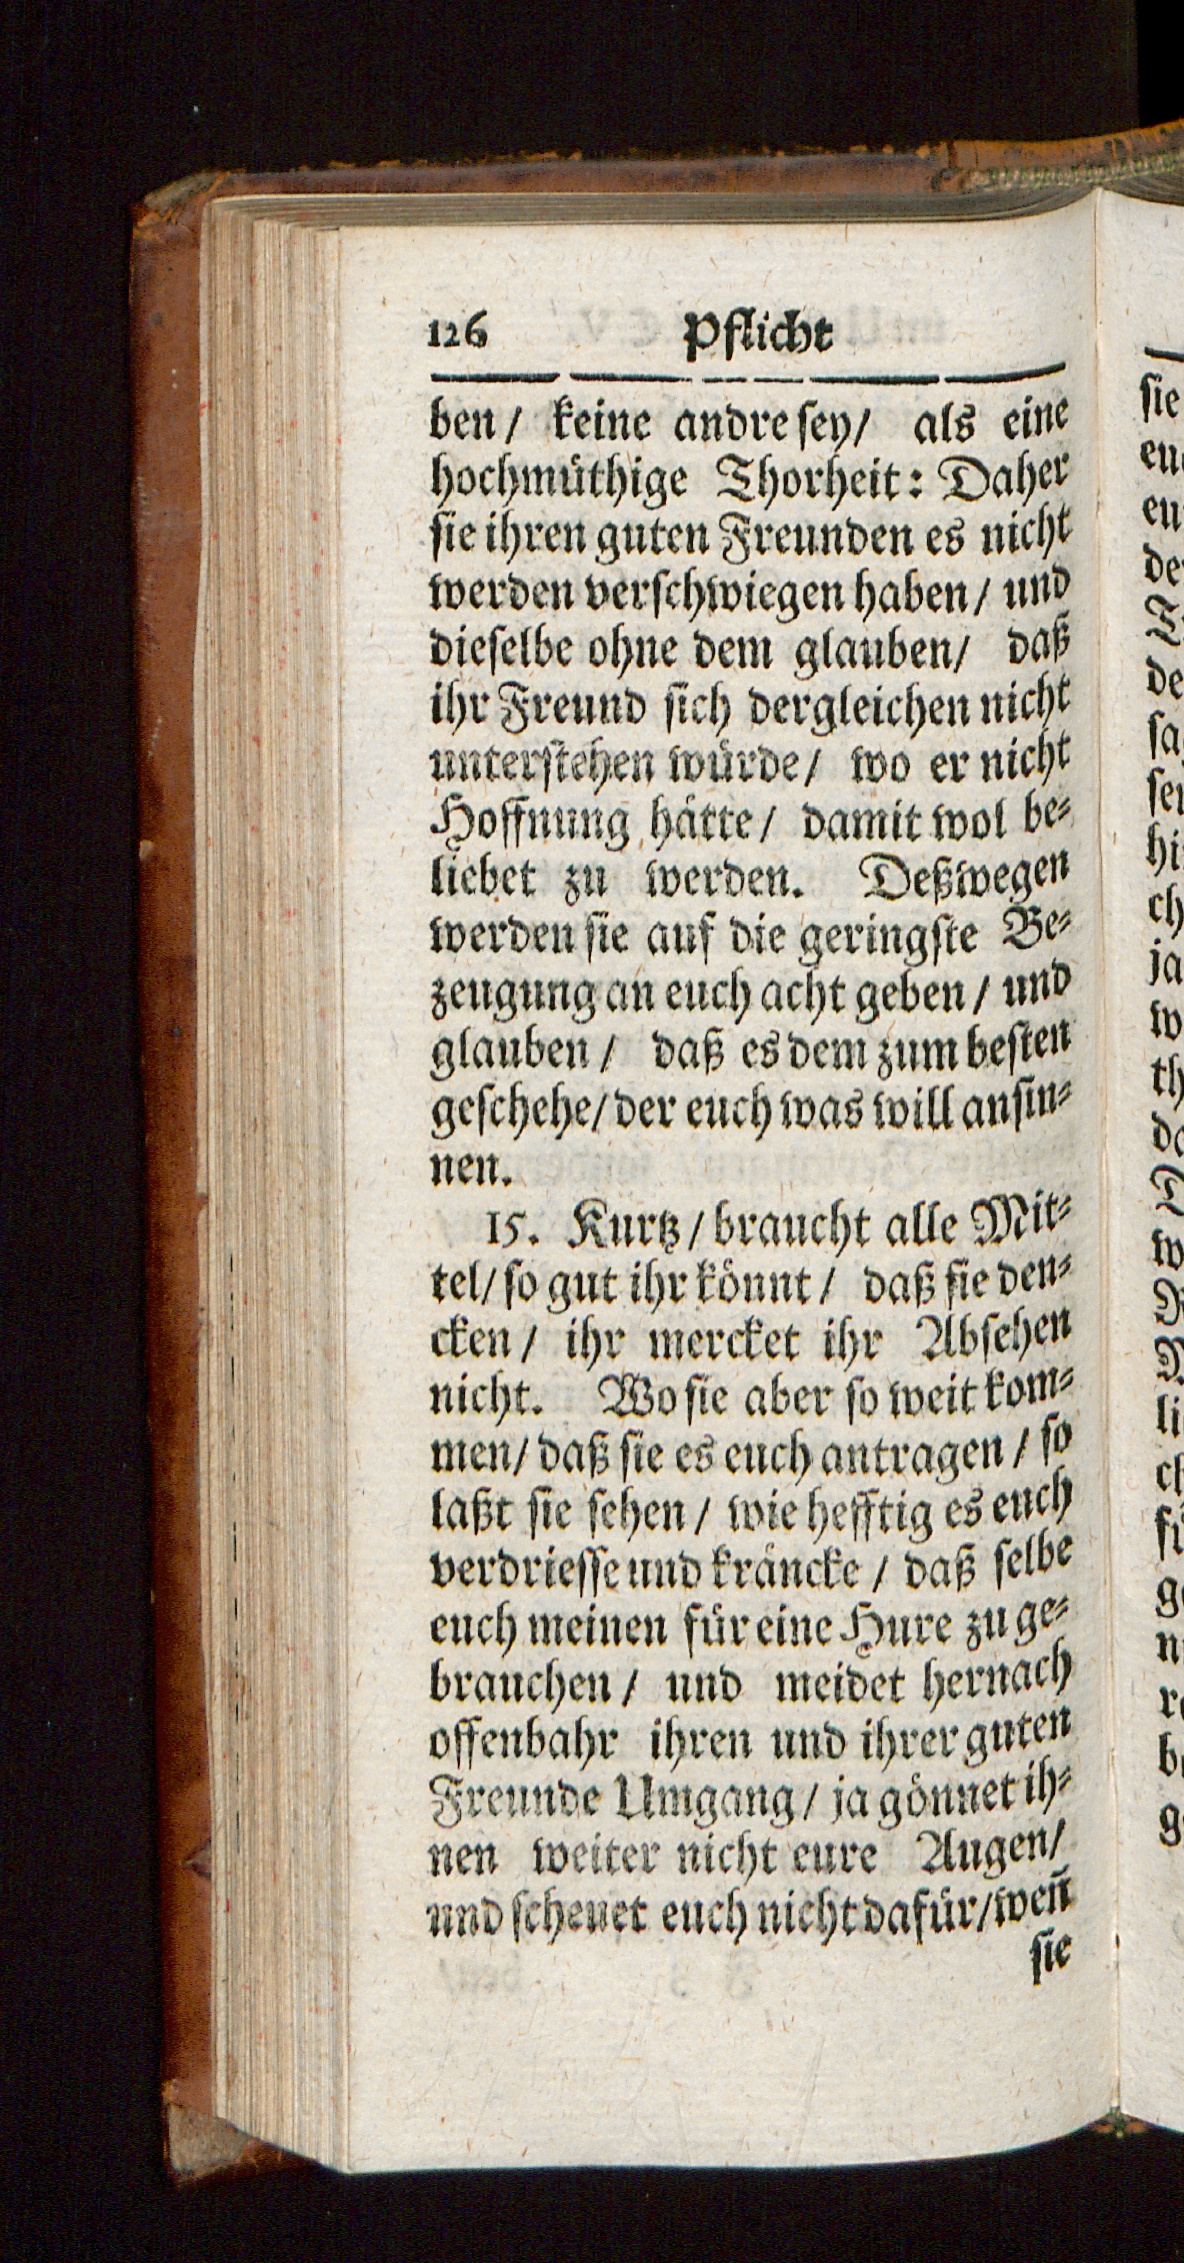 126 Pflicht
ben/ keine andre sey/ als eine
hochmüthige Thorheit: Daher
sie ihren guten Freunden es nicht
werden verschwiegen haben/ und
dieselbe ohne dem glauben/ daß
ihr Freund sich dergleichen nicht
unterstehen würde/ wo er nicht
Hoffnung hätte/ damit wol be-
liebet zu werden. Deßwegen
werden sie auf die geringste Be-
zeugung an euch acht geben/ und
glauben/ daß es dem zum besten
geschehe/ der euch was will ansin-
nen.
15. Kurtz/ braucht alle Mit-
tel/ so gut ihr könnt/ daß sie den-
cken/ ihr mercket ihr Absehen
nicht. Wo sie aber so weit kom-
men/ daß sie es euch antragen/ so
laßt sie sehen/ wie hefftig es euch
verdriesse und kräncke/ daß selbe
euch meinen für eine Hure zu ge-
brauchen/ und meidet hernach
offenbahr ihren und ihrer guten
Freunde Umgang/ ja gönnet ih-
nen weiter nicht eure Augen/
und scheuet euch nicht dafür/ weñ
sie